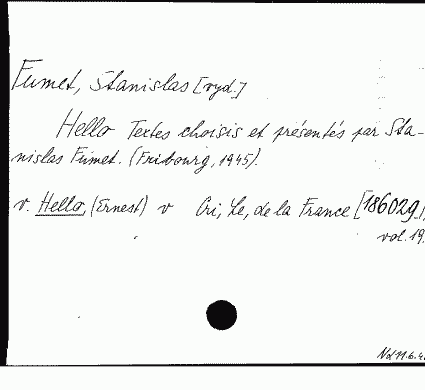 Fumet, Stanislas [ryd.]
Hello Textes choisis et présentés par Sta-
nislas Fumet. (Fribourg, 1945).
v. Hello, (Ernest) v Cri, Le, de la France [186029],
vol. 19.
Nd 11.6.4